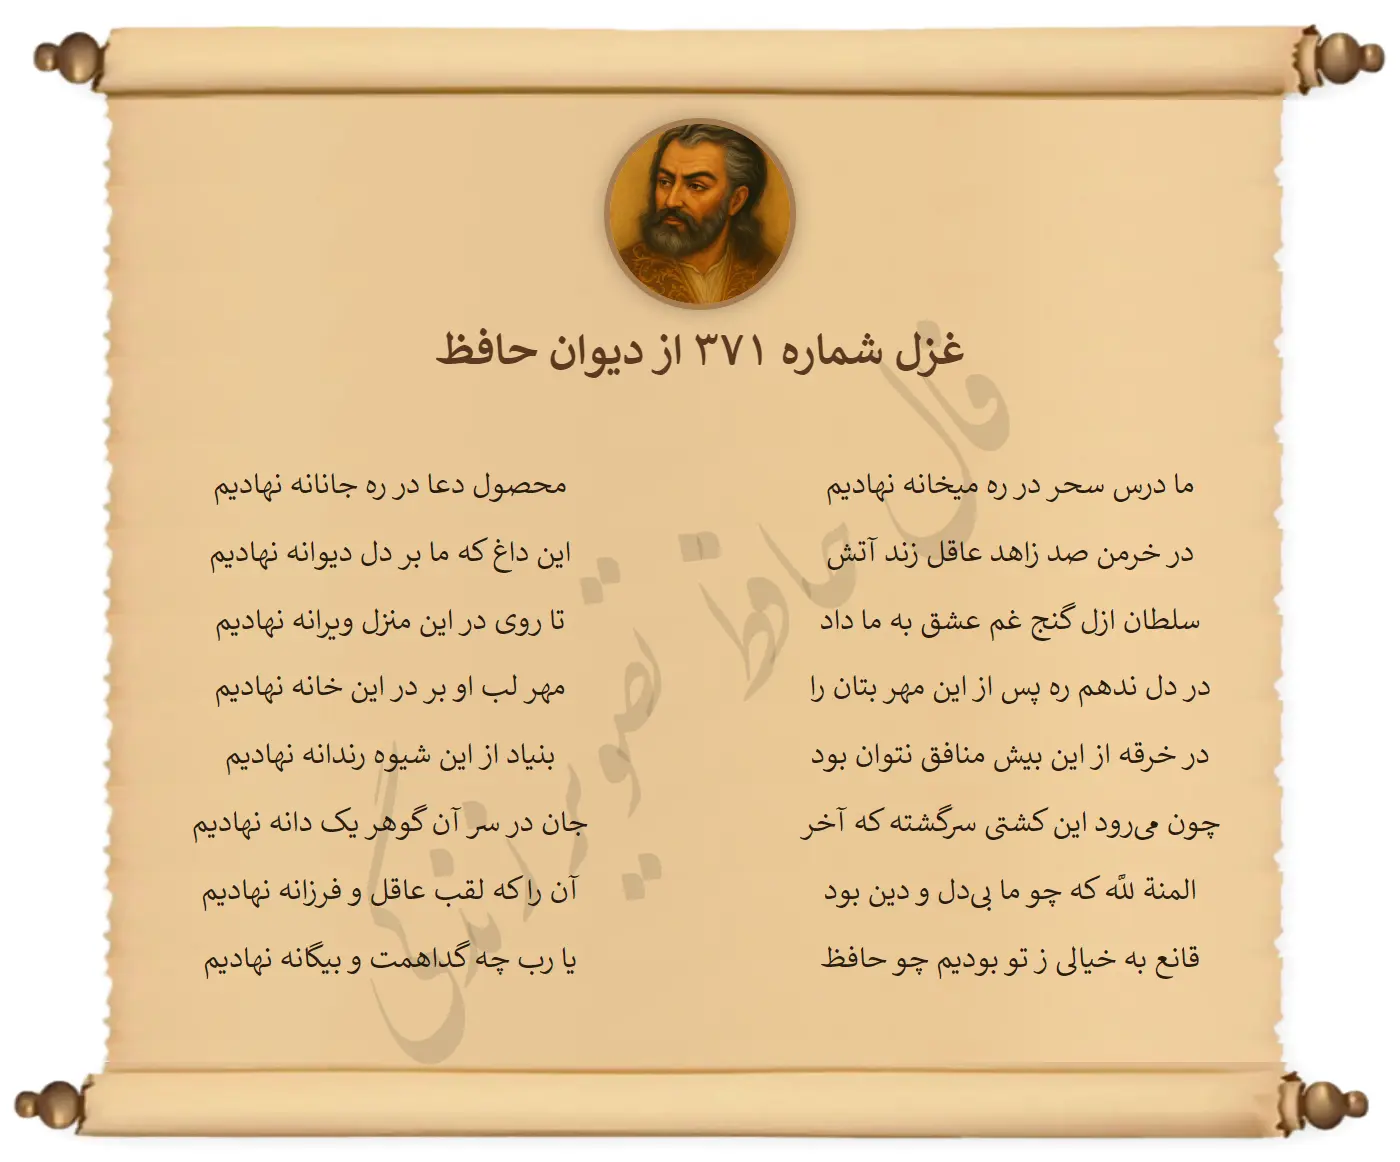 غزل شماره ۳۷۱ از دیوان حافظ
ما درس سحر در ره میخانه نهادیم محصول دعا در ره جانانه نهادیم
در خرمن صد زاهد عاقل زند آتش این داغ که ما بر دل دیوانه نهادیم
سلطان ازل گنج غم عشق به ما داد تا روی در این منزل ویرانه نهادیم
در دل ندهم ره پس از این مهر بتان را مهر لب او بر در این خانه نهادیم
در خرقه از این بیش منافق نتوان بود بنیاد از این شیوه رندانه نهادیم
چون می‌رود این کشتی سرگشته که آخر جان در سر آن گوهر یک دانه نهادیم
المنة لله که چو ما بی‌دل و دین بود آن را که لقب عاقل و فرزانه نهادیم
قانع به خیالی ز تو بودیم چو حافظ یا رب چه گداهمت و بیگانه نهادیم
فال حافظ تصویر زندگی